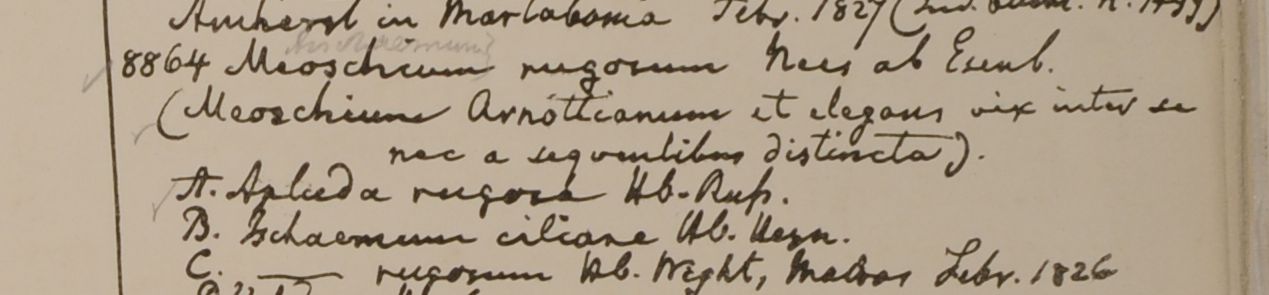 Amherst in Martabania Febr. 1827 (
Ischaemum
8864 Meoschium rugosum Nees ab Esenb.
(Meoschium Arnottianum et elegans vix inter se
nec a sequentibus distincta).
A. Apluda rugosa Hb. Russ.
B. Ischaemum ciliare Hb. Heyn.
C. —— rugosum Hb. Wight, Madras Febr. 1826